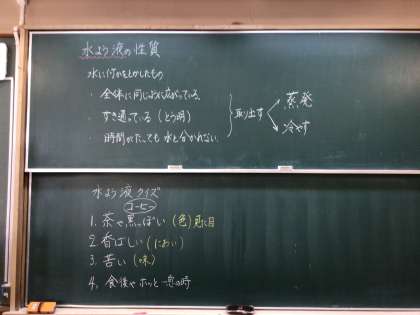 水よう液の性質
水に何かをとかしたもの
・全体に同じように広がっている。
・すき通っている (とう明)
・時間がたっても水と分かれない。
取り出す
蒸発
冷やす
水よう液クイズ
コーヒー
1. 茶や黒っぽい (色) 見た目
2. 香ばしい (におい)
3. 苦い (味)
4. 食後やホッと一息の時